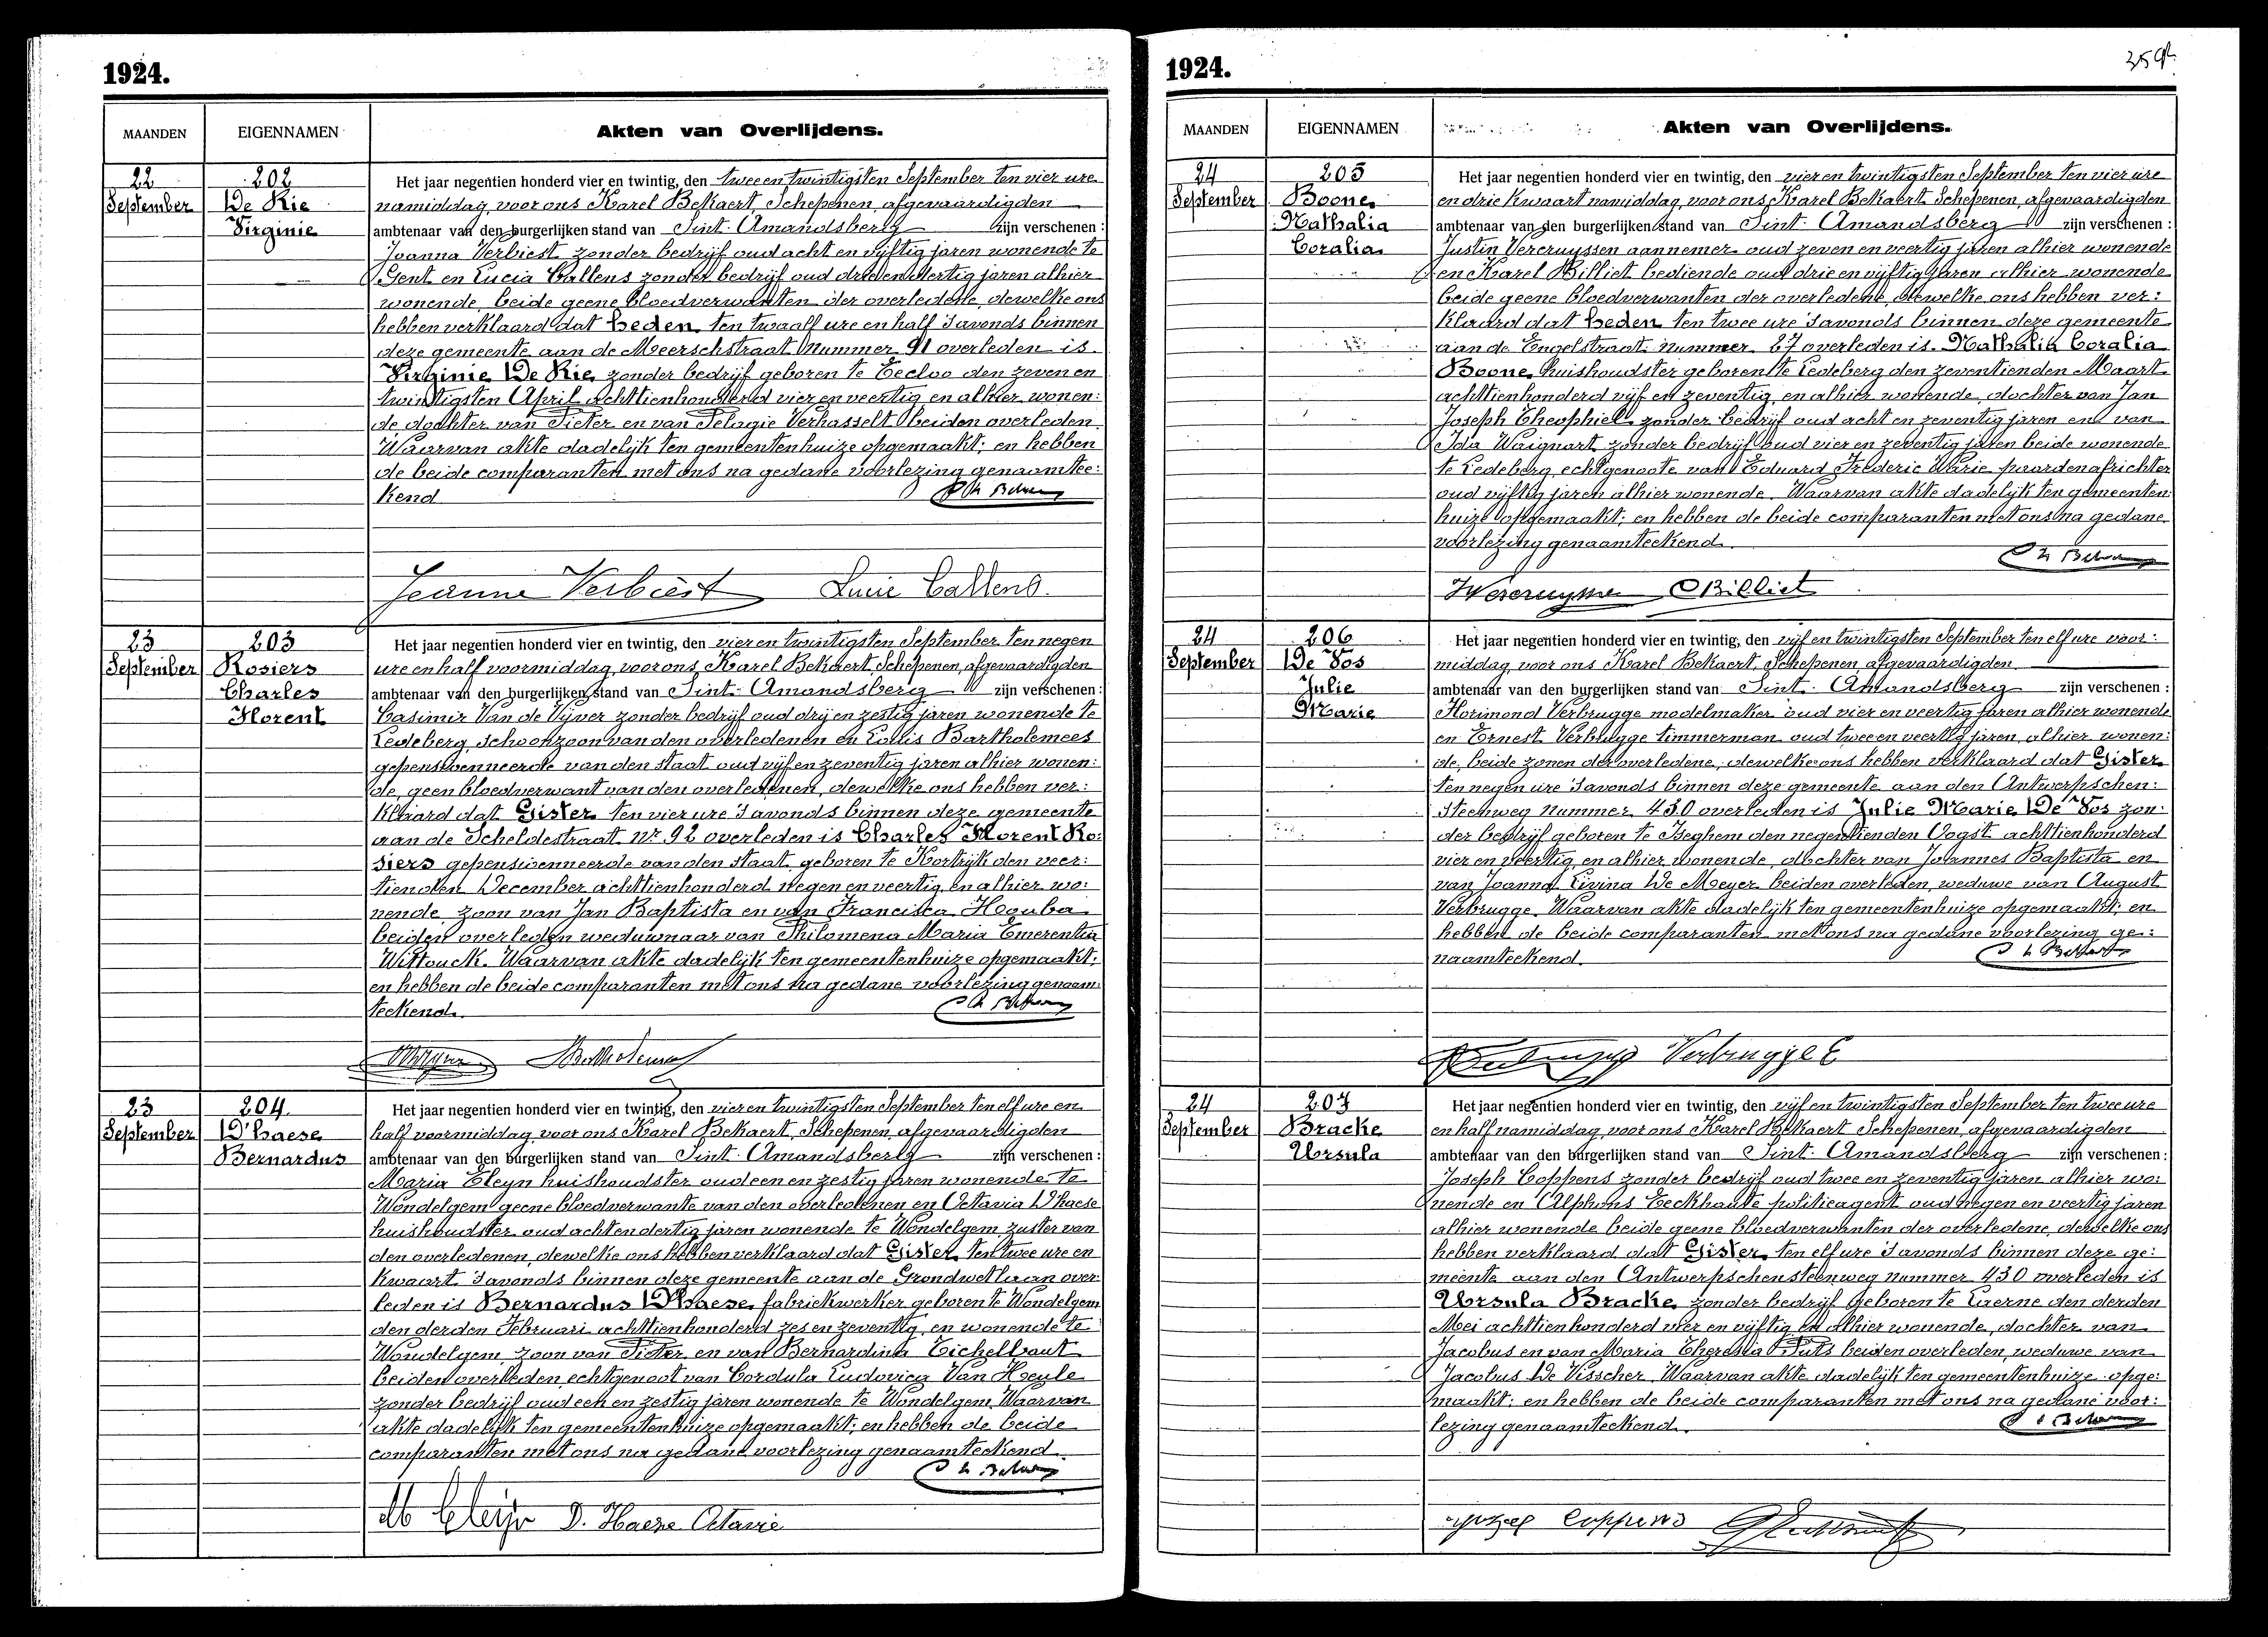 1924.
MAANDEN
EIGENNAMEN
Akten van Overlijdens.
22
September
202
De Rie
Virginie
Het jaar negentien honderd vier en twintig, den twee en twintigsten September ten vier ure
namiddag, voor ons Karel Bekaert, Schepenen, afgevaardigden
ambtenaar van den burgerlijken stand van Sint-Amandsberg zijn verschenen:
Joanna Verbiest zonder bedrijf oud acht en vijftig jaren wonende te
Gent en Lucia Callens zonder bedrijf oud drie en veertig jaren alhier
wonende, beide geene bloedverwanten der overledene, dewelke ons
hebben verklaard dat heden, ten twaalf ure en half 's avonds binnen
deze gemeente aan de Meerschstraat Nummer 91 overleden is
Virginie De Rie, zonder bedrijf geboren te Eecloo den zeven en
twintigsten April achttienhonderd vier en veertig en alhier wonen:
de dochter van Pieter en van Pelagie Verhasselt beiden overleden.
Waarvan akte dadelijk ten gemeentenhuize opgemaakt; en hebben
de beide comparanten met ons na gedane voorlezing genaamtee:
kend
Jeanne Verbiest Lucie Callens
23
September
203
Rosiers
Charles
Florent
Het jaar negentien honderd vier en twintig, den vier en twintigsten September ten negen
ure en half voormiddag, voor ons Karel Bekaert, Schepenen, afgevaardigden
ambtenaar van den burgerlijken stand van Sint-Amandsberg zijn verschenen:
Casimir Van de Vijver zonder bedrijf oud drij en zestig jaren wonende te
Ledeberg, schoonzoon van den overledenen en Louis Bartholemees
gepensioenneerde van den staat oud vijf en zeventig jaren alhier wonen:
de, geen bloedverwant van den overledenen, dewelke ons hebben ver:
klaard dat Gister, ten vier ure 's avonds binnen deze gemeente
aan de Scheldestraat Nr 92 overleden is Charles Florent Ro:
siers gepensioenneerde van den staat geboren te Kortrijk den veer:
tienden December achttienhonderd negen en veertig, en alhier wo:
nende, zoon van Jan Baptista en van Francisca Houba
beiden overleden weduwnaar van Philomena Maria Emerentia
Wittouck. Waarvan akte dadelijk ten gemeentenhuize opgemaakt;
en hebben de beide comparanten met ons na gedane voorlezing genaam:
teekend.
23
September
204
D'haese
Bernardus
Het jaar negentien honderd vier en twintig, den vier en twintigsten September ten elf ure en
half voormiddag, voor ons Karel Bekaert, Schepenen, afgevaardigden
ambtenaar van den burgerlijken stand van Sint-Amandsberg zijn verschenen:
Maria Cleyn huishoudster oud een en zestig jaren wonende te
Wondelgem geene bloedverwante van den overledenen en Octavia D'haese
huishoudster oud acht en dertig jaren wonende te Wondelgem, zuster van
den overledenen, dewelke ons hebben verklaard dat Gister, ten twee ure en
kwaart 's avonds binnen deze gemeente aan de Grondwetlaan over:
leden is Bernardus D'haese, fabriekwerker geboren te Wondelgem
den derden Februari achttienhonderd zes en zeventig, en wonende te
Wondelgem, zoon van Pieter, en van Bernardina Eichelbaut
beiden overleden, echtgenoot van Cordula Ludovica Van Heule
zonder bedrijf oud een en zestig jaren wonende te Wondelgem. Waarvan
akte dadelijk ten gemeentenhuize opgemaakt; en hebben de beide
comparanten met ons na gedane voorlezing genaamteekend.
M Cleijn D. Haese Octavie
1924.
MAANDEN
EIGENNAMEN
Akten van Overlijdens.
24
September
205
Boone,
Nathalia
Coralia
Het jaar negentien honderd vier en twintig, den vier en twintigsten September ten vier ure
en drie kwaart namiddag, voor ons Karel Bekaert, Schepenen, afgevaardigden
ambtenaar van den burgerlijken stand van Sint-Amandsberg zijn verschenen:
Justin Vercruyssen aannemer oud zeven en veertig jaren alhier wonende
en Karel Billiet bediende oud drie en vijftig jaren alhier wonende
beide geene bloedverwanten der overledene, dewelke ons hebben ver:
klaard dat heden ten twee ure 's avonds binnen deze gemeente
aan de Engelstraat nummer 27 overleden is Nathalia Coralia
Boone, huishoudster geboren te Ledeberg den zeventienden Maart
achttienhonderd vijf en zeventig, en alhier wonende, dochter van Jan
Joseph Theophiel zonder bedrijf oud acht en zeventig jaren en van
Ida Waignart zonder bedrijf oud vier en zeventig jaren beide wonende
te Ledeberg, echtgenoote van Eduard Frederic Warie paardenafrichter
oud vijftig jaren alhier wonende. Waarvan akte dadelijk ten gemeenten:
huize opgemaakt; en hebben de beide comparanten met ons na gedane
voorlezing genaamteekend.
Billiet
24
September
206
De Vos
Julie
Marie
Het jaar negentien honderd vier en twintig, den vijf en twintigsten September ten elf ure voor:
middag, voor ons Karel Bekaert, Schepenen, afgevaardigden
ambtenaar van den burgerlijken stand van Sint-Amandsberg zijn verschenen:
Florimond Verbrugge modelmaker oud vier en veertig jaren alhier wonende
en Ernest Verbrugge timmerman oud twee en veertig jaren, alhier wonen:
de, beide zonen der overledene, dewelke ons hebben verklaard dat Gister,
ten negen ure 's avonds binnen deze gemeente aan den Antwerpschen:
steenweg nummer 430 overleden is Julie Marie De Vos zon:
der bedrijf geboren te Iseghem den negentienden Oogst achttienhonderd
vier en veertig, en alhier wonende, dochter van Joannes Baptista en
van Joanna Livina De Meyer beiden overleden, weduwe van August
Verbrugge. Waarvan akte dadelijk ten gemeentenhuize opgemaakt; en
hebben de beide comparanten met ons na gedane voorlezing ge:
naamteekend.
Verbrugge E
24
September
207
Bracke
Ursula
Het jaar negentien honderd vier en twintig, den vijf en twintigsten September ten twee ure
en half namiddag, voor ons Karel Bekaert Schepenen, afgevaardigden
ambtenaar van den burgerlijken stand van Sint-Amandsberg zijn verschenen:
Joseph Coppens zonder bedrijf oud twee en zeventig jaren alhier wo:
nende en Alphons Eeckhaute politieagent oud negen en veertig jaren
alhier wonende beide geene bloedverwanten der overledene, dewelke ons
hebben verklaard dat Gister, ten elf ure 's avonds binnen deze ge:
meente aan den Antwerpschensteenweg nummer 430 overleden is
Ursula Bracke, zonder bedrijf geboren te Laerne den derden
Mei achttienhonderd vier en vijftig en alhier wonende, dochter van
Jacobus en van Maria Theresia Puts beiden overleden, weduwe van
Jacobus De Visscher. Waarvan akte dadelijk ten gemeentenhuize opge:
maakt; en hebben de beide comparanten met ons na gedane voor:
lezing genaamteekend.
Jozeef Coppens